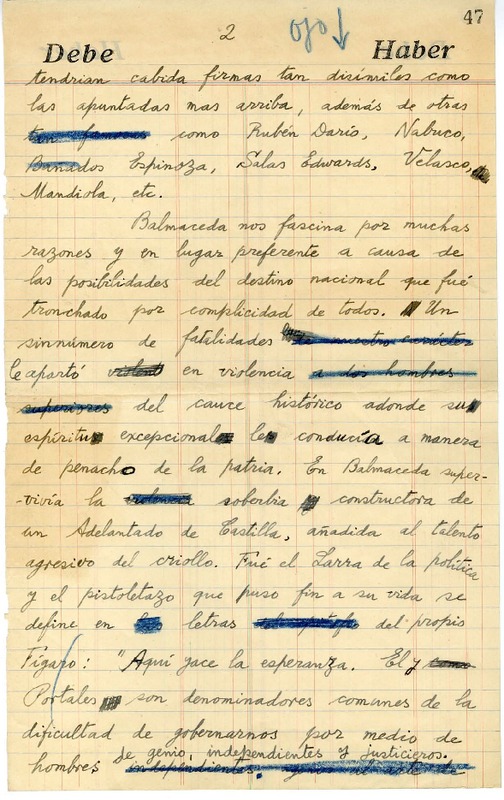 47
2
ojo
Debe Haber
tendrian cabida firmas tan disímiles como
las apuntadas mas arriba, además de otras
tan famosas como Rubén Darío, Nabuco,
Bañados Espinoza, Salas Edwards, Velasco,
Mandiola, etc.
Balmaceda nos fascina por muchas
razones y en lugar preferente a causa de
las posibilidades del destino nacional que fué
tronchado por complicidad de todos. Un
sinnúmero de fatalidades de nuestro carácter
le apartó violent en violencia a dos hombres
superiores del cauce histórico adonde su
espíritu excepcional le conducía a manera
de penacho de la patria. En Balmaceda super-
-vivía la violencia soberbia constructora de
un Adelantado de Castilla, añadida al talento
agresivo del criollo. Fué el Larra de la política
y el pistoletazo que puso fin a su vida se
define en letras del propio
Fígaro: "Aquí yace la esperanza. El y como
Portales son denominadores comunes de la
dificultad de gobernarnos por medio de
de genio, independientes y justicieros.
hombres independientes.